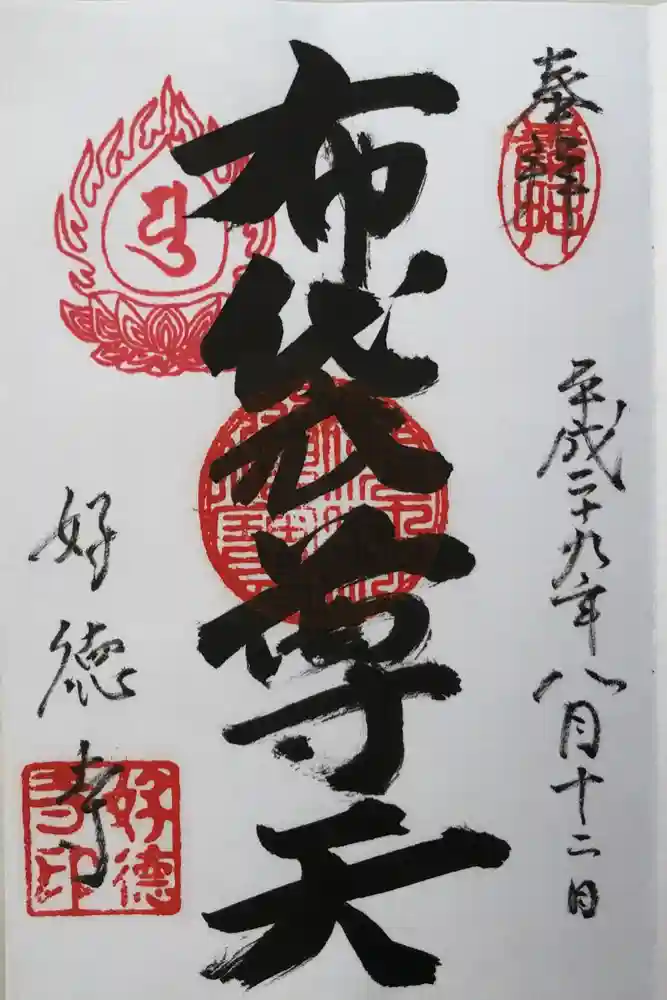 奉拝
平成二十九年八月十二日
布袋尊天
好徳寺
好徳
寺印